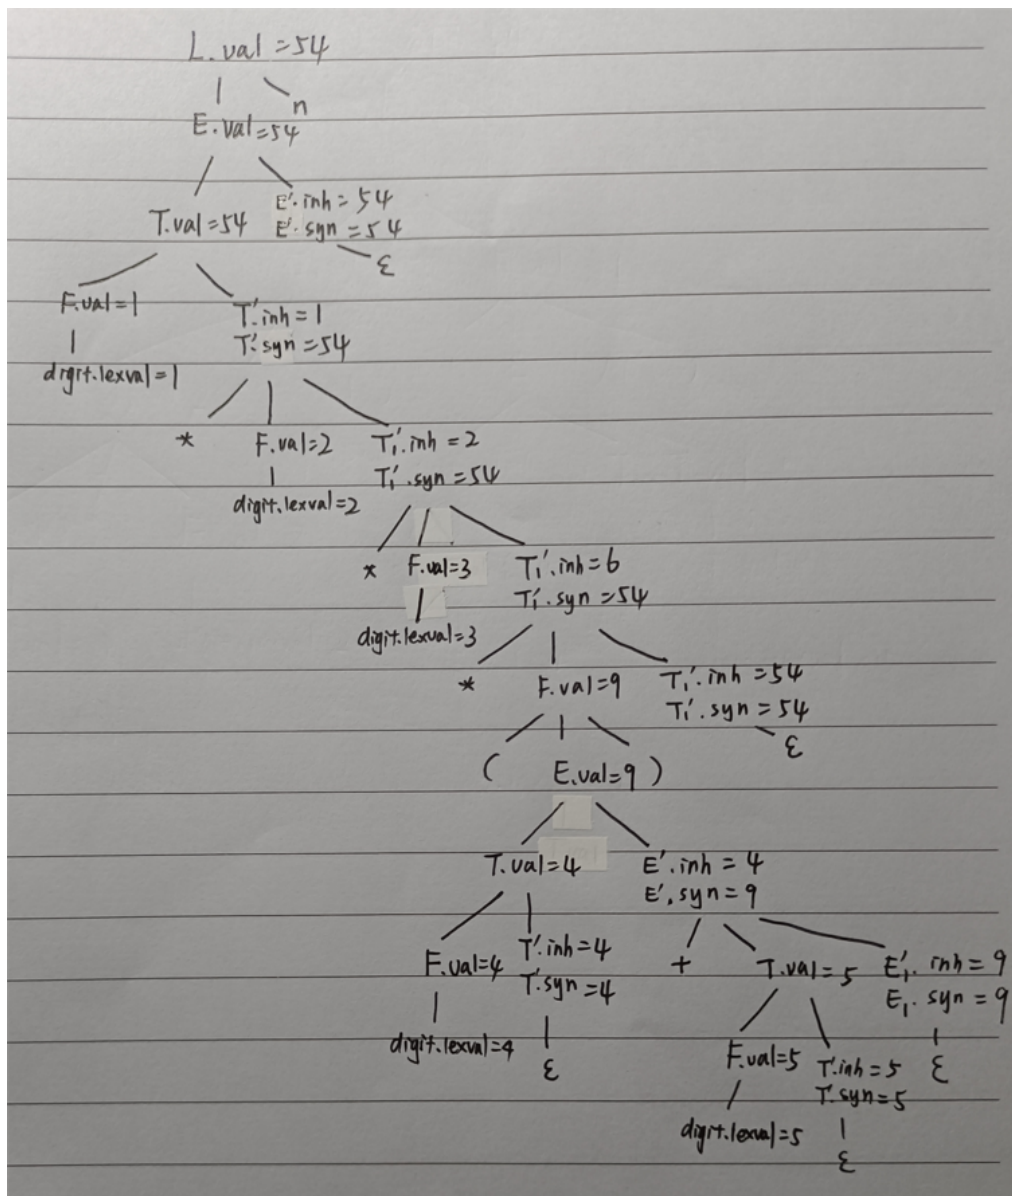 L.val=54
n
E.val=54
E'.inh=54
T.val=54 E'.syn=54
ε
F.val=1 T'.inh=1
T'.syn=54
digit.lexval=1
* F.val=2 T₁'.inh=2
T₁'.syn=54
digit.lexval=2
* F.val=3 T₁'.inh=6
T₁'.syn=54
digit.lexval=3
* F.val=9 T₁'.inh=54
T₁'.syn=54
ε
( E.val=9 )
T.val=4 E'.inh=4
E'.syn=9
F.val=4 T'.inh=4 + T.val=5 E₁'.inh=9
T'.syn=4 E₁.syn=9
digit.lexval=4 ε F.val=5 T'.inh=5 ε
T'.syn=5
digit.lexval=5
ε